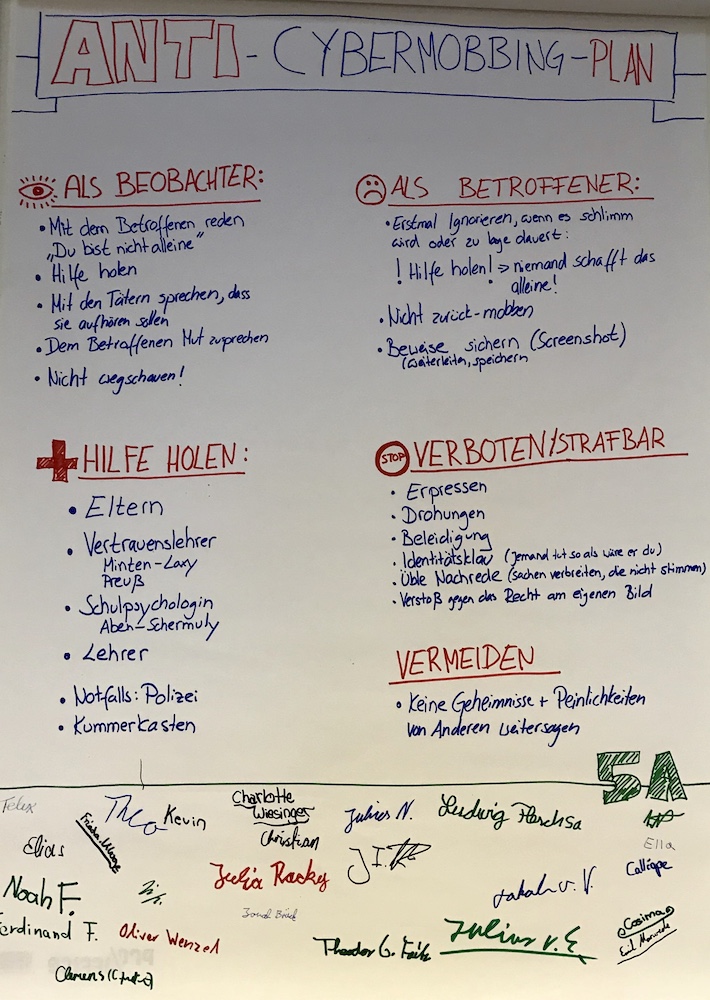 ANTI-CYBERMOBBING-PLAN
ALS BEOBACHTER:
• Mit dem Betroffenen reden
„Du bist nicht alleine"
• Hilfe holen
• Mit den Tätern sprechen, dass
sie aufhören sollen
• Dem Betroffenen Mut zusprechen
• Nicht wegschauen!
ALS BETROFFENER:
• Erstmal Ignorieren, wenn es schlimm
wird oder zu lage dauert:
! Hilfe holen! ⇒ niemand schafft das
alleine!
• Nicht zurück-mobben
• Beweise sichern (Screenshot)
(weiterleiten, speichern
HILFE HOLEN:
• Eltern
• Vertrauenslehrer
Minten-Laxy
Preuß
• Schulpsychologin
Aben-Schermuly
• Lehrer
• Notfalls: Polizei
• Kummerkasten
STOP VERBOTEN/STRAFBAR
• Erpressen
• Drohungen
• Beleidigung
• Identitätsklau (jemand tut so als wäre er du)
• Üble Nachrede (sachen verbreiten, die nicht stimmen)
• Verstoß gegen das Recht am eigenen Bild
VERMEIDEN
• Keine Geheimnisse + Peinlichkeiten
von Anderen weitersagen
5A
Felix
Theo
Kevin
Charlotte
Wiesinger
Christian
Julius N.
Ludwig
Ella
Elias
Calliope
Julia Racky
Noah F.
Ferdinand F.
Oliver Wenzel
Theodor G.
Julius v. E
Cosima
Clemens